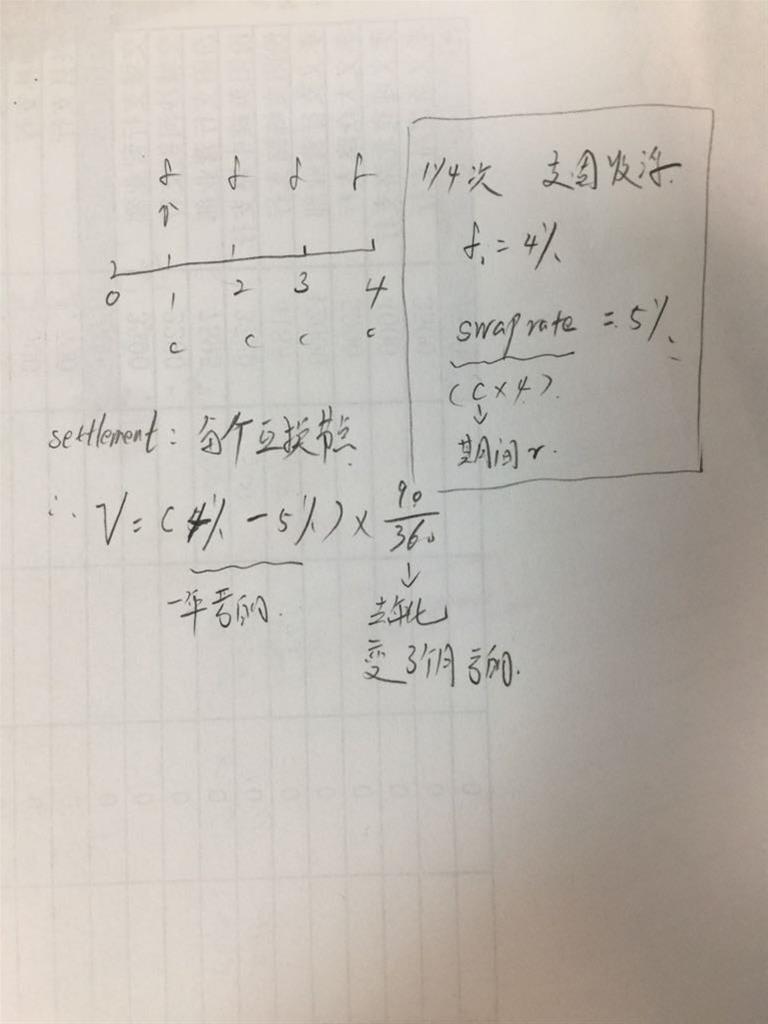 f f f f
↑
0 1 2 3 4
c c c c
1y4次 支固收浮.
f₁ = 4%
swap rate = 5%
(c × 4).
↓
期间r.
settlement: 每个互换节点
∴ V = (4% - 5%) × 90/360
↓
一年着的. 去年化
变3个月的.